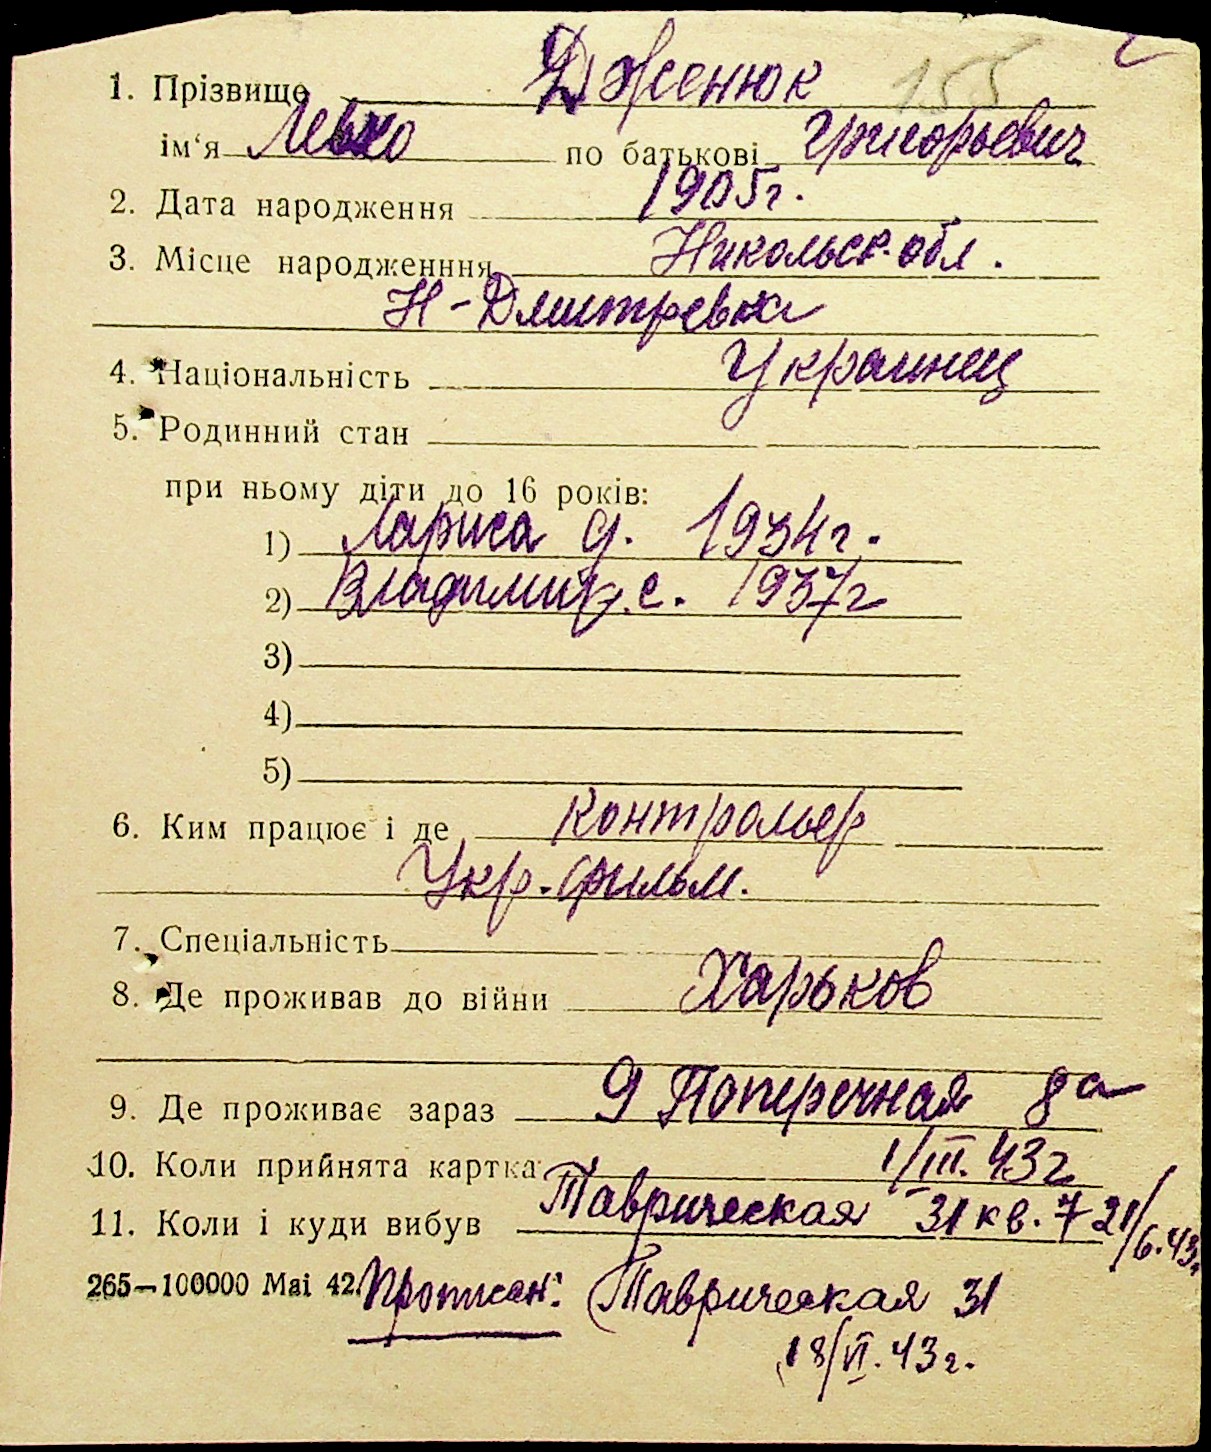 155
1. Прізвище Дженюк
ім‘я Левко по батькові Григорьевич
2. Дата народження 1905г.
3. Місце народженння Никольск. обл.
Н-Дмитревка
4. Національність Украинец
5. Родинний стан
при ньому діти до 16 років:
1) Лариса д. 1934г.
2) Владимир с. 1937г
3)
4)
5)
6. Ким працює і де контрольер
Укр. фильм.
7. Спеціальність
8. Де проживав до війни Харьков
9. Де проживає зараз 9 Поперечная 8а
10. Коли прийнята картка 1/III. 43г
11. Коли і куди вибув Таврическая 31 кв. 7 21/6.43г
265—100000 Mai 42. Прописан: Таврическая 31
18/VI. 43г.